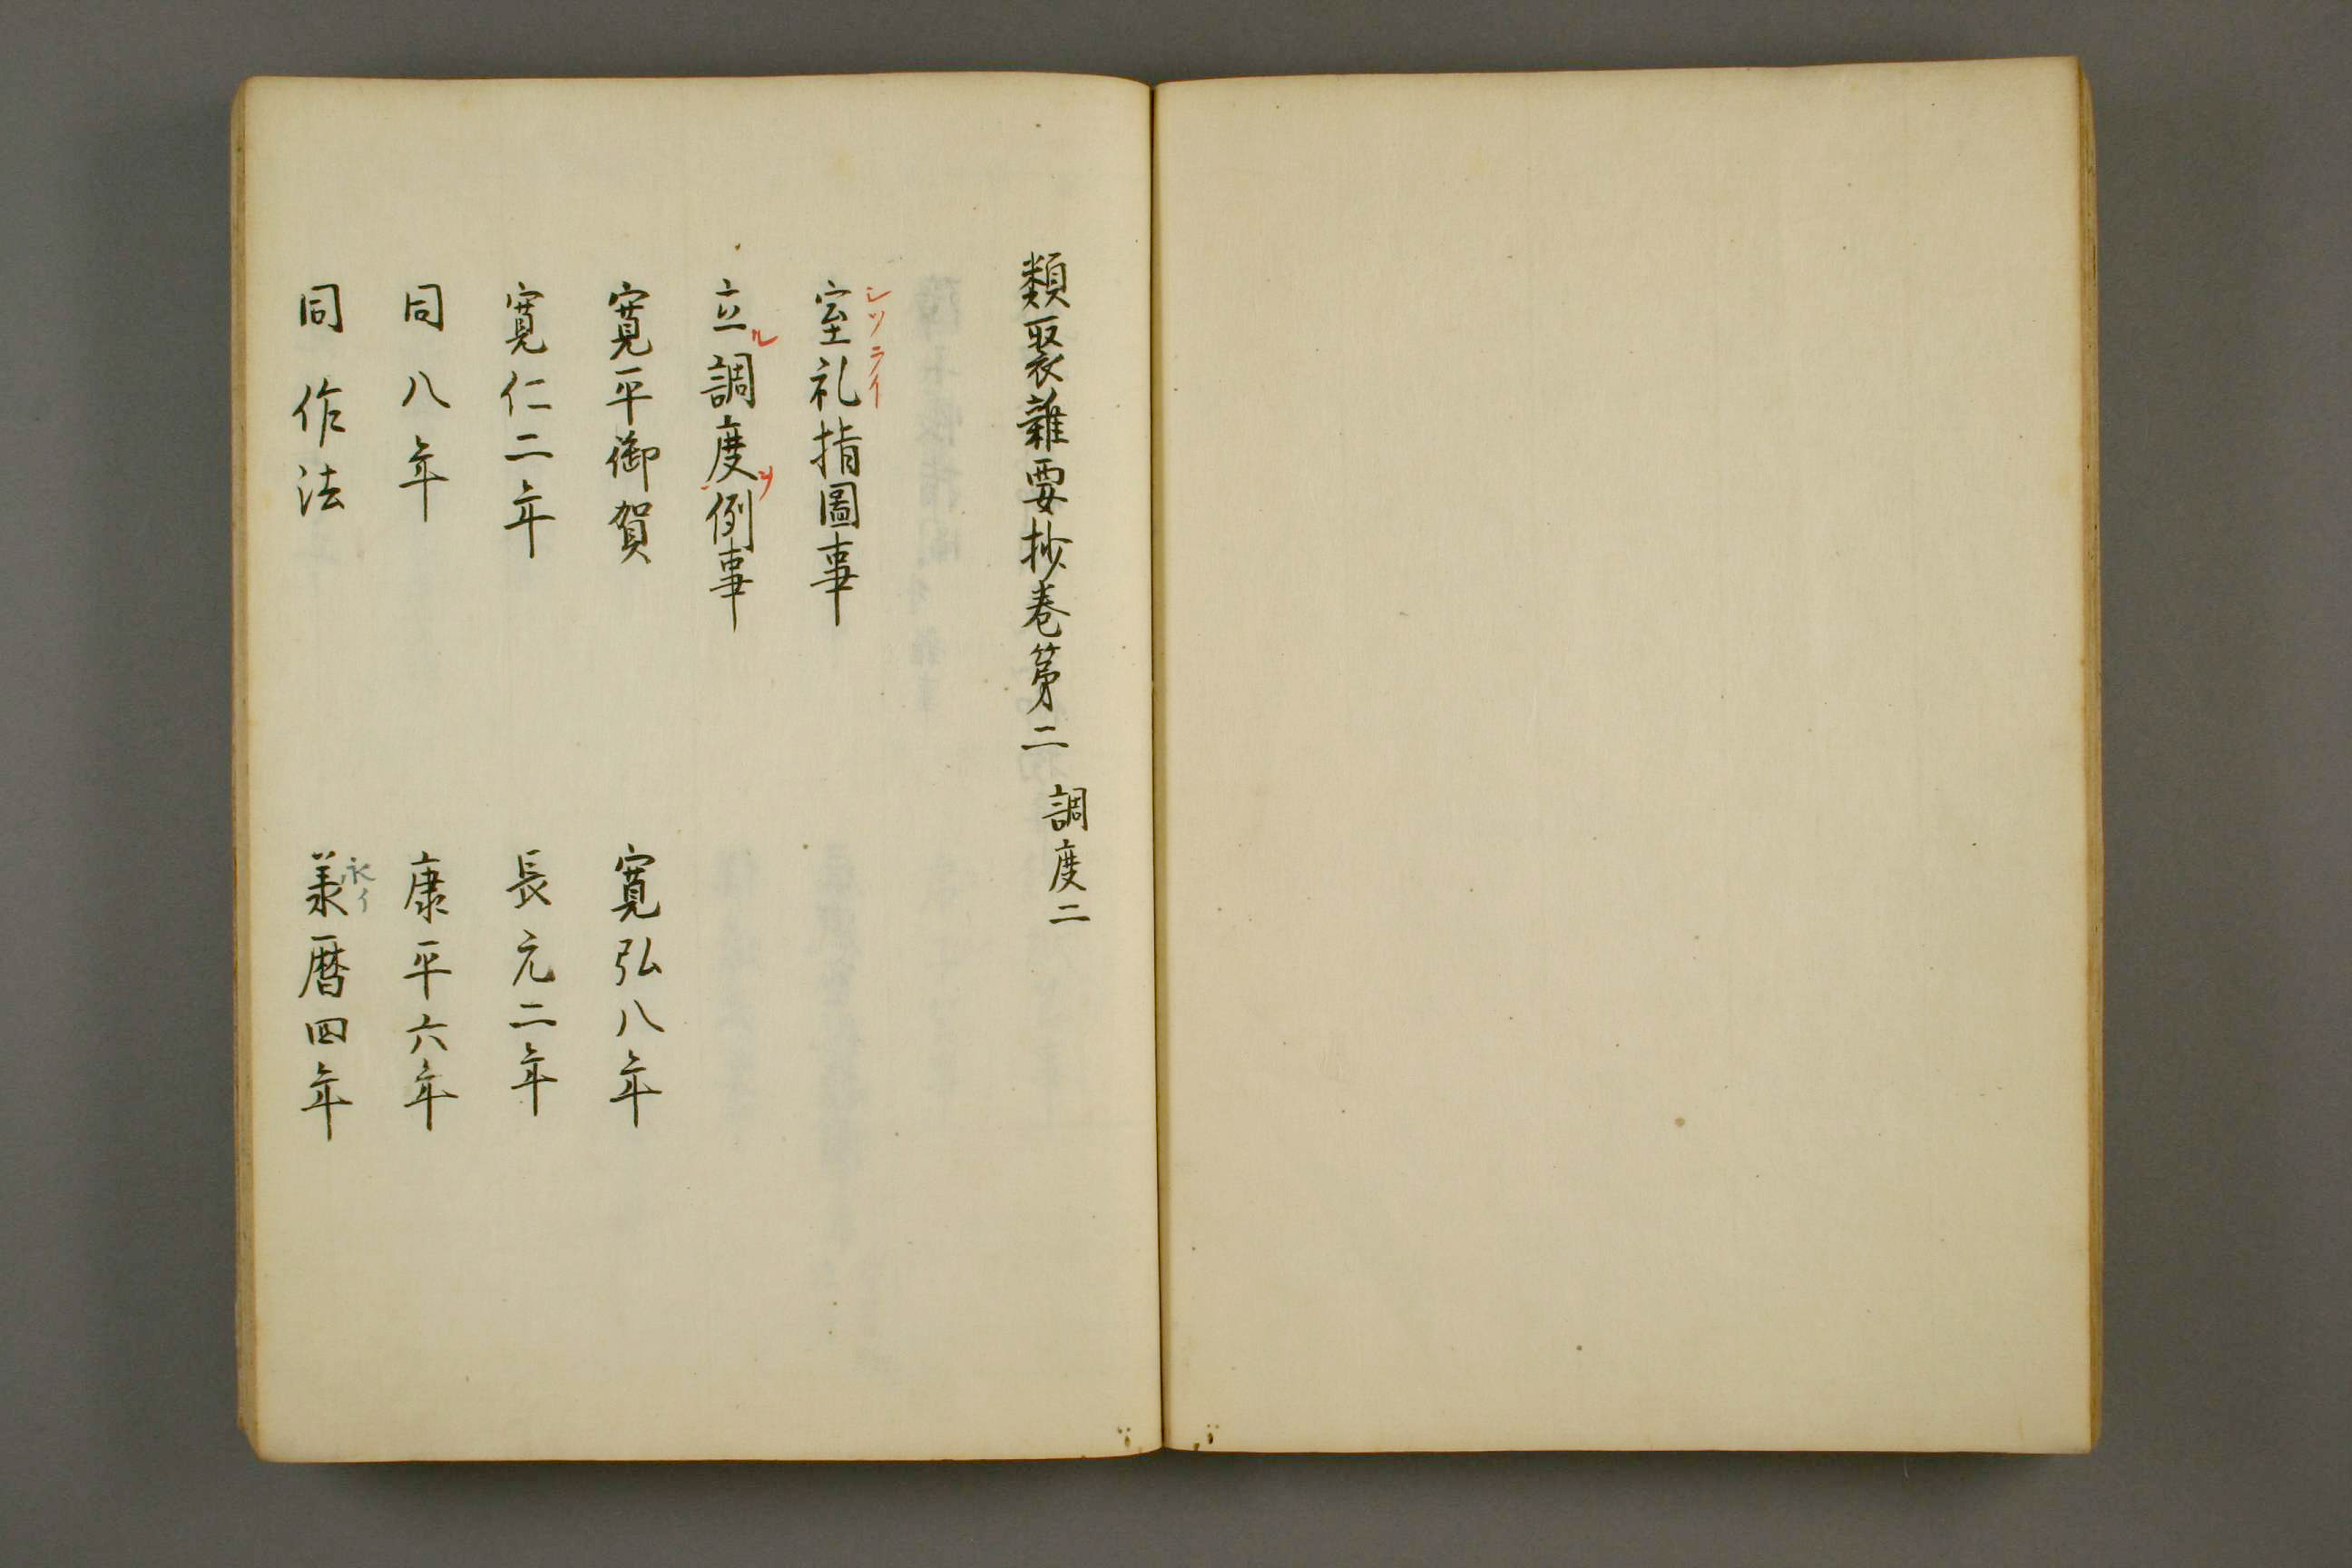 類聚雜要抄巻第二 調度二
室礼指圖事
シツライ
立調度例事
ル ツ
寛平御賀 寛弘八年
寛仁二年 長元二年
同八年 康平六年
同作法 羕暦四年
永イ